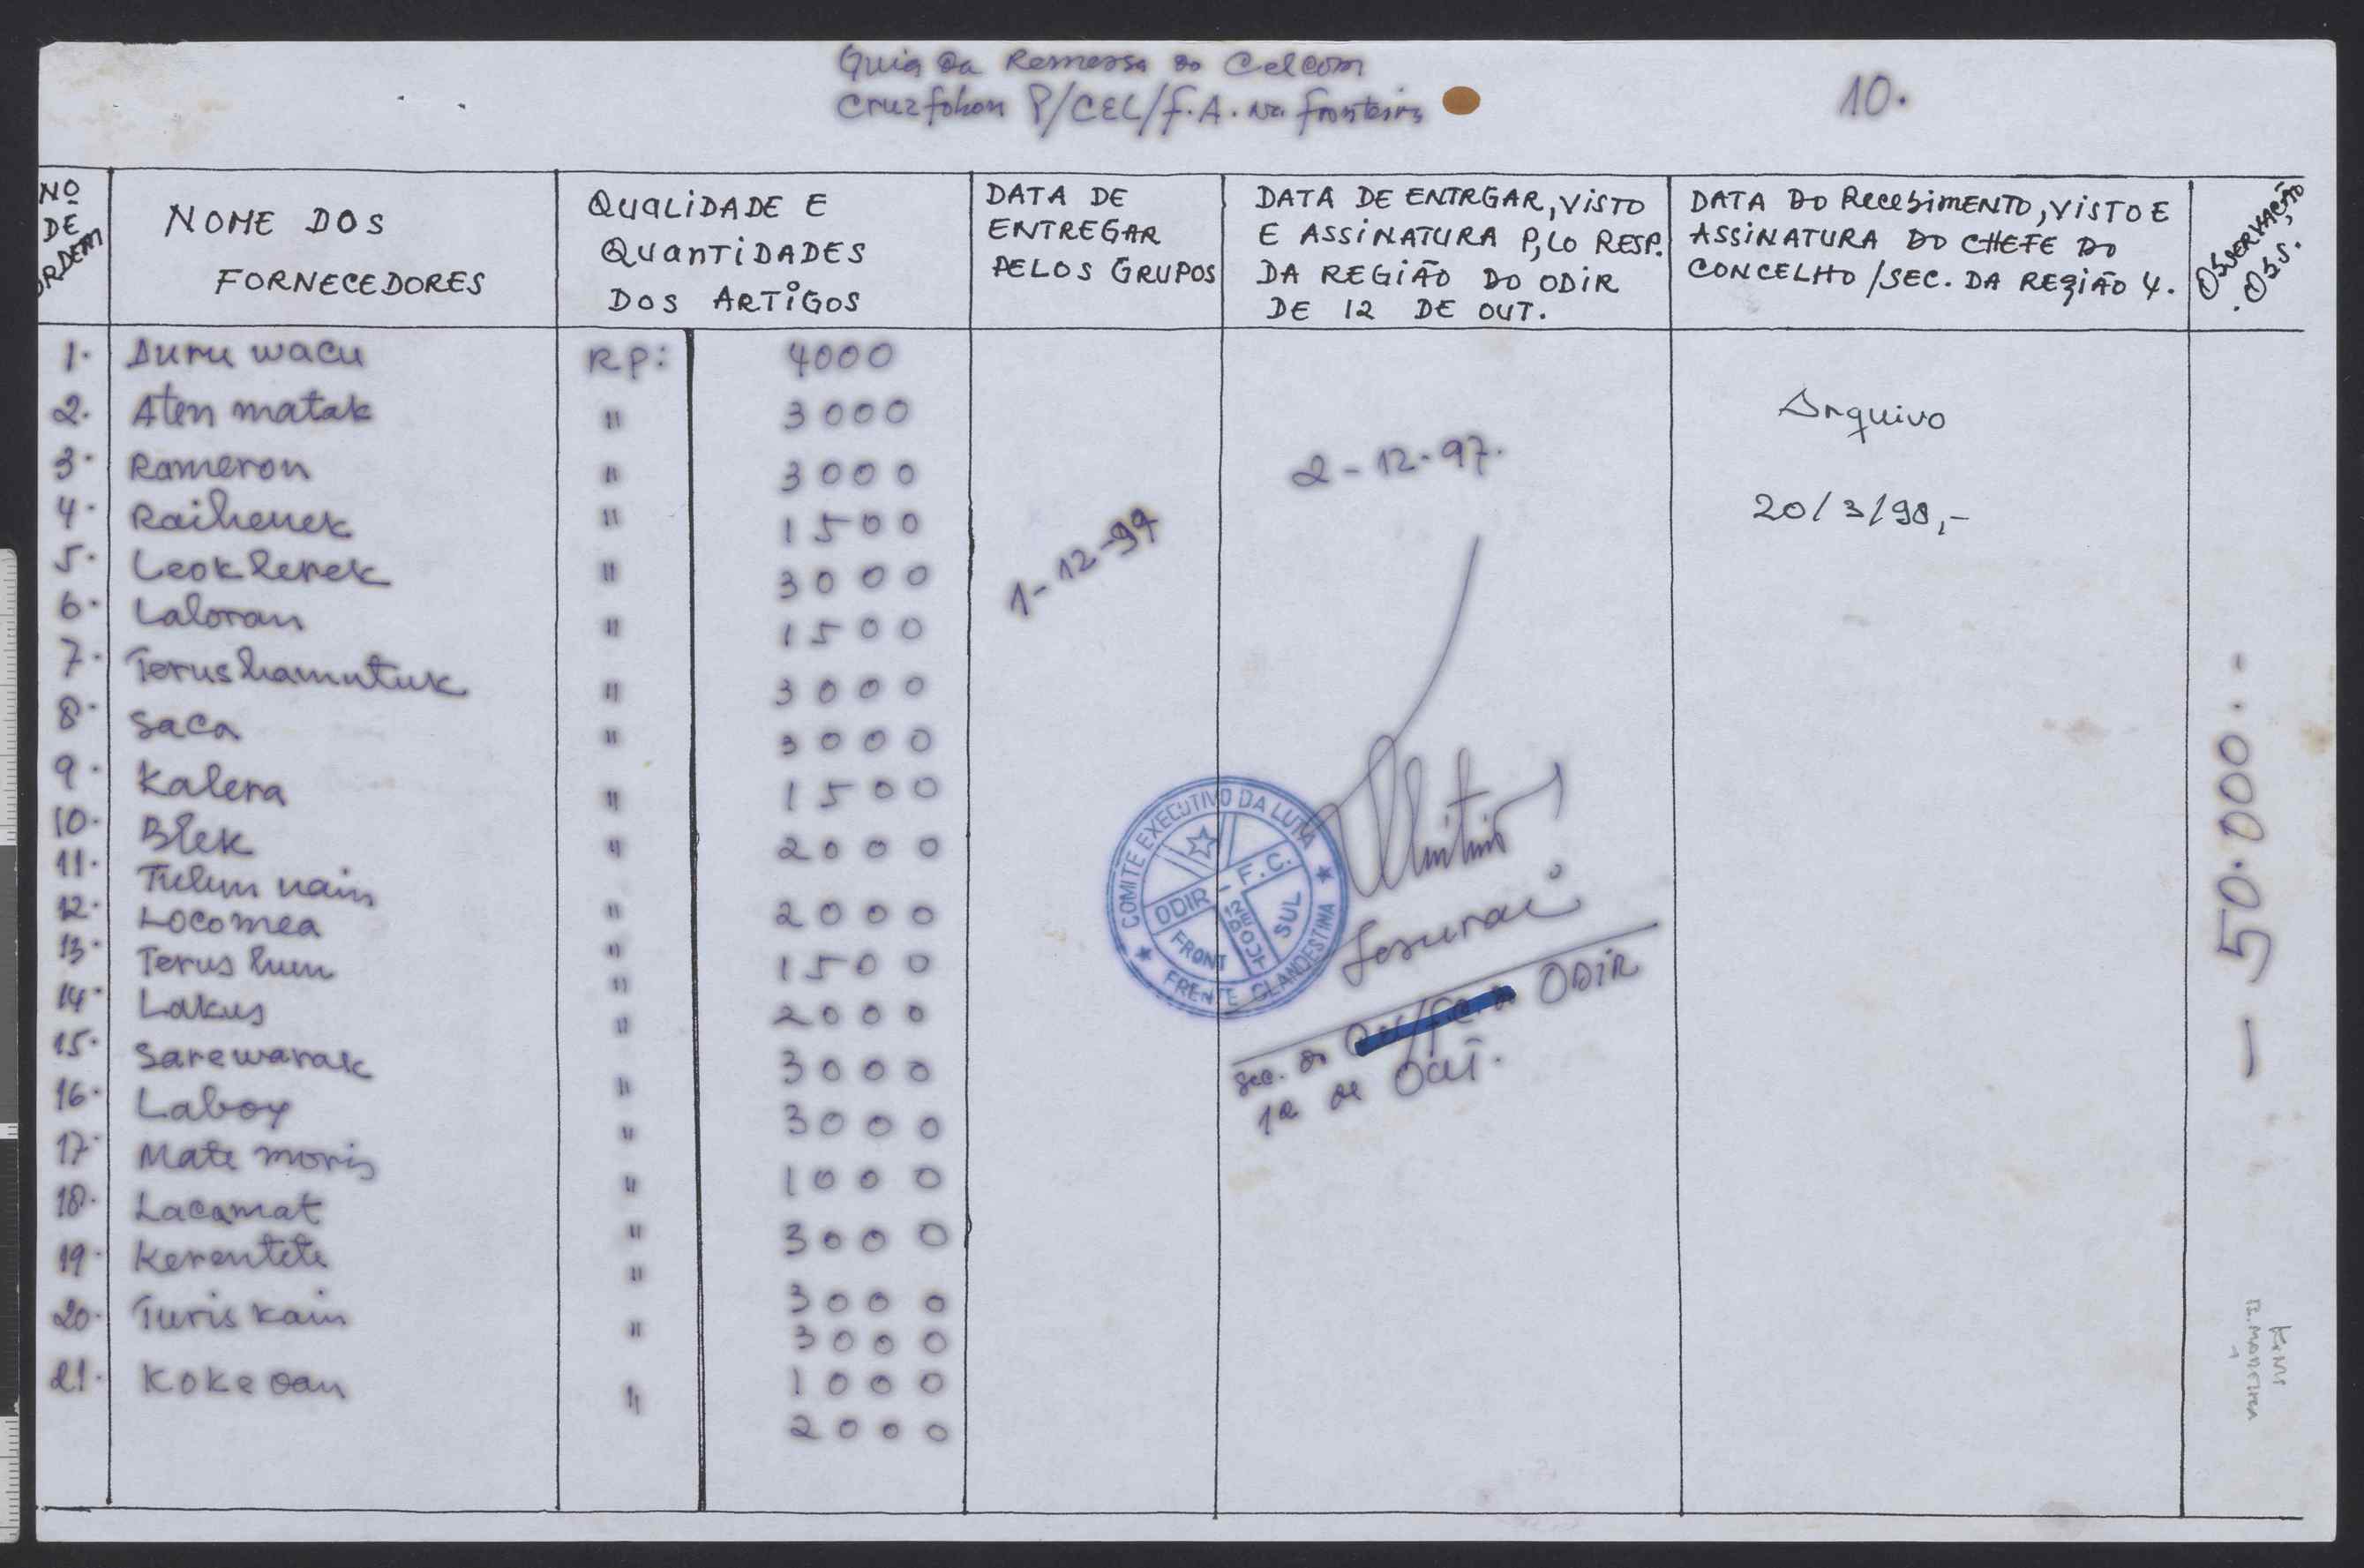 Guia da Remessa do Celcom
Cruzfohon P/CEL/F.A. na fronteira
10.
Nº DE ORDEM
NOME DOS FORNECEDORES
QUALIDADE E QUANTIDADES DOS ARTIGOS
DATA DE ENTREGAR PELOS GRUPOS
DATA DE ENTRGAR, VISTO E ASSINATURA P,LO RESP. DA REGIÃO DO ODIR DE 12 DE OUT.
DATA DO RecebiMENTO, VISTO E ASSINATURA DO CHEFE DO CONCELHO / SEC. DA REGIÃO 4.
OBSERVAÇÃO . OBS.
1. Duru wacu RP: 4000
2. Aten matak " 3000
3. Rameron " 3000
4. Raihenek " 1500
5. Leok lerek " 3000
6. Laloran " 1500
7. Terus hamutuk " 3000
8. Saca " 3000
9. Kalera " 1500
10. Blek " 2000
11. Tulun nain " 2000
12. Locomea " 1500
13. Terus lum " 2000
14. Lakus " 3000
15. Sarewarak " 3000
16. Laboy " 1000
17. Mate moris " 3000
18. Lacamat " 3000
19. Kerentete " 3000
20. Turis kain " 1000
21. Koke oan " 2000
1-12-97
2-12-97.
COMITE EXECUTIVO DA LUTA
FRENTE CLANDESTINA
ODIR - F.C.
12 DE OUT
FRONT
SUL
Sec. do ODIR
12 de Out.
Arquivo
20/3/98,-
— 50.000..-